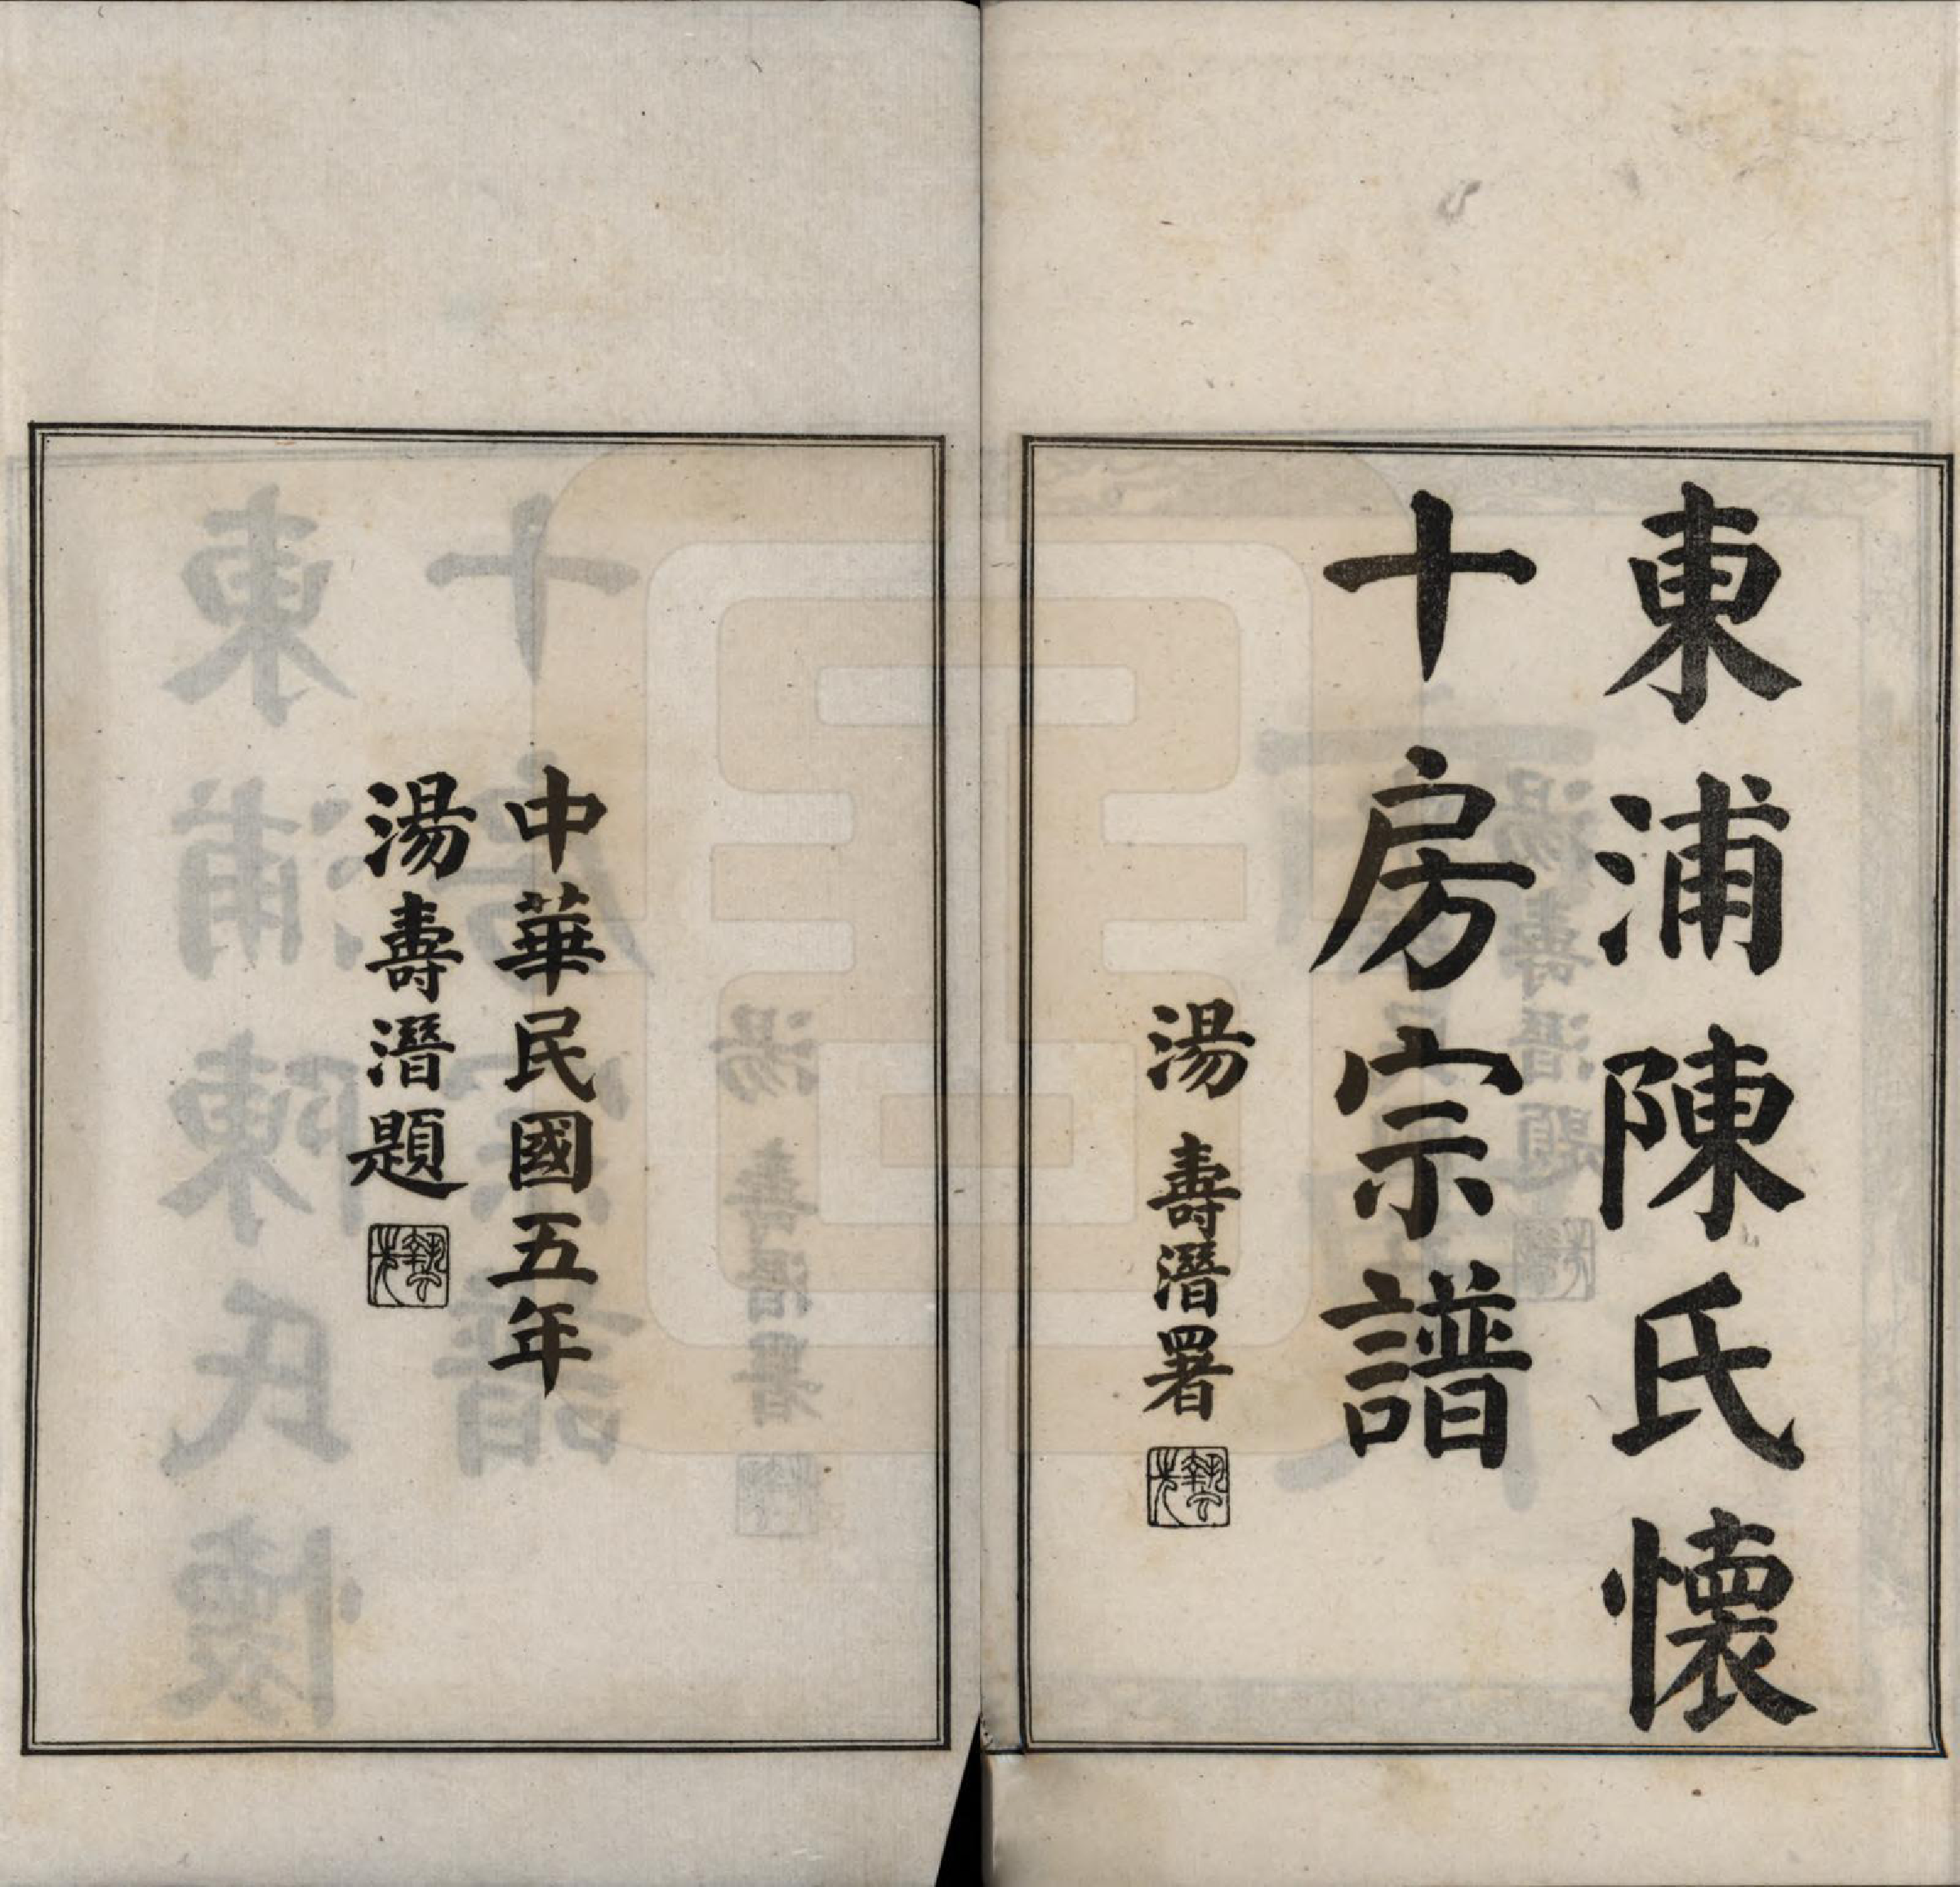 東浦陳氏懷
十房宗譜
湯壽潛署
中華民國五年
湯壽潛題